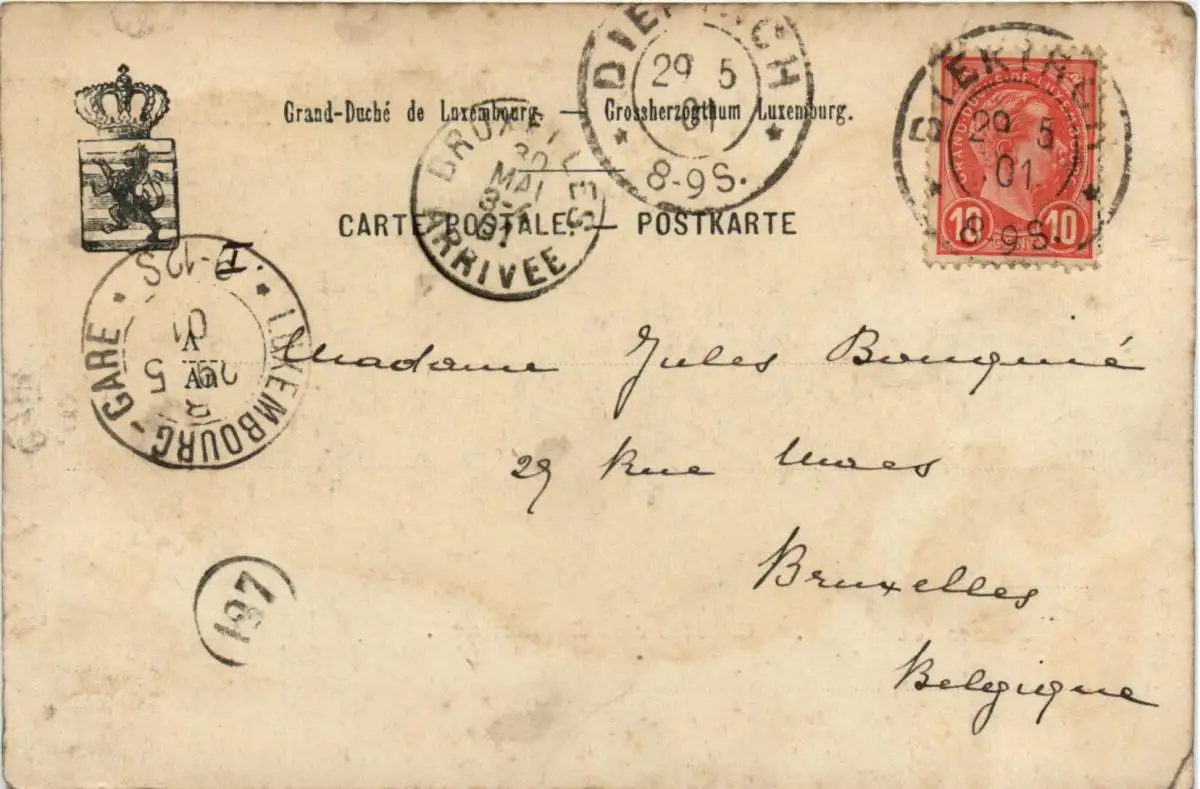 Grand-Duché de Luxembourg. — Grossherzogthum Luxemburg.
CARTE POSTALE. — POSTKARTE
DIEKIRCH
29 5
01
8-9S.
DIEKIRCH
29 5
01
8-9S.
GRAND-DUCHÉ-DE-LUXEMBOURG
10 10
BRUXELLES
30
MAI
01
ARRIVÉE
LUXEMBOURG-GARE
29 5
01
Madame Jules Bouquié
29 Rue Maes
Bruxelles
Belgique
197